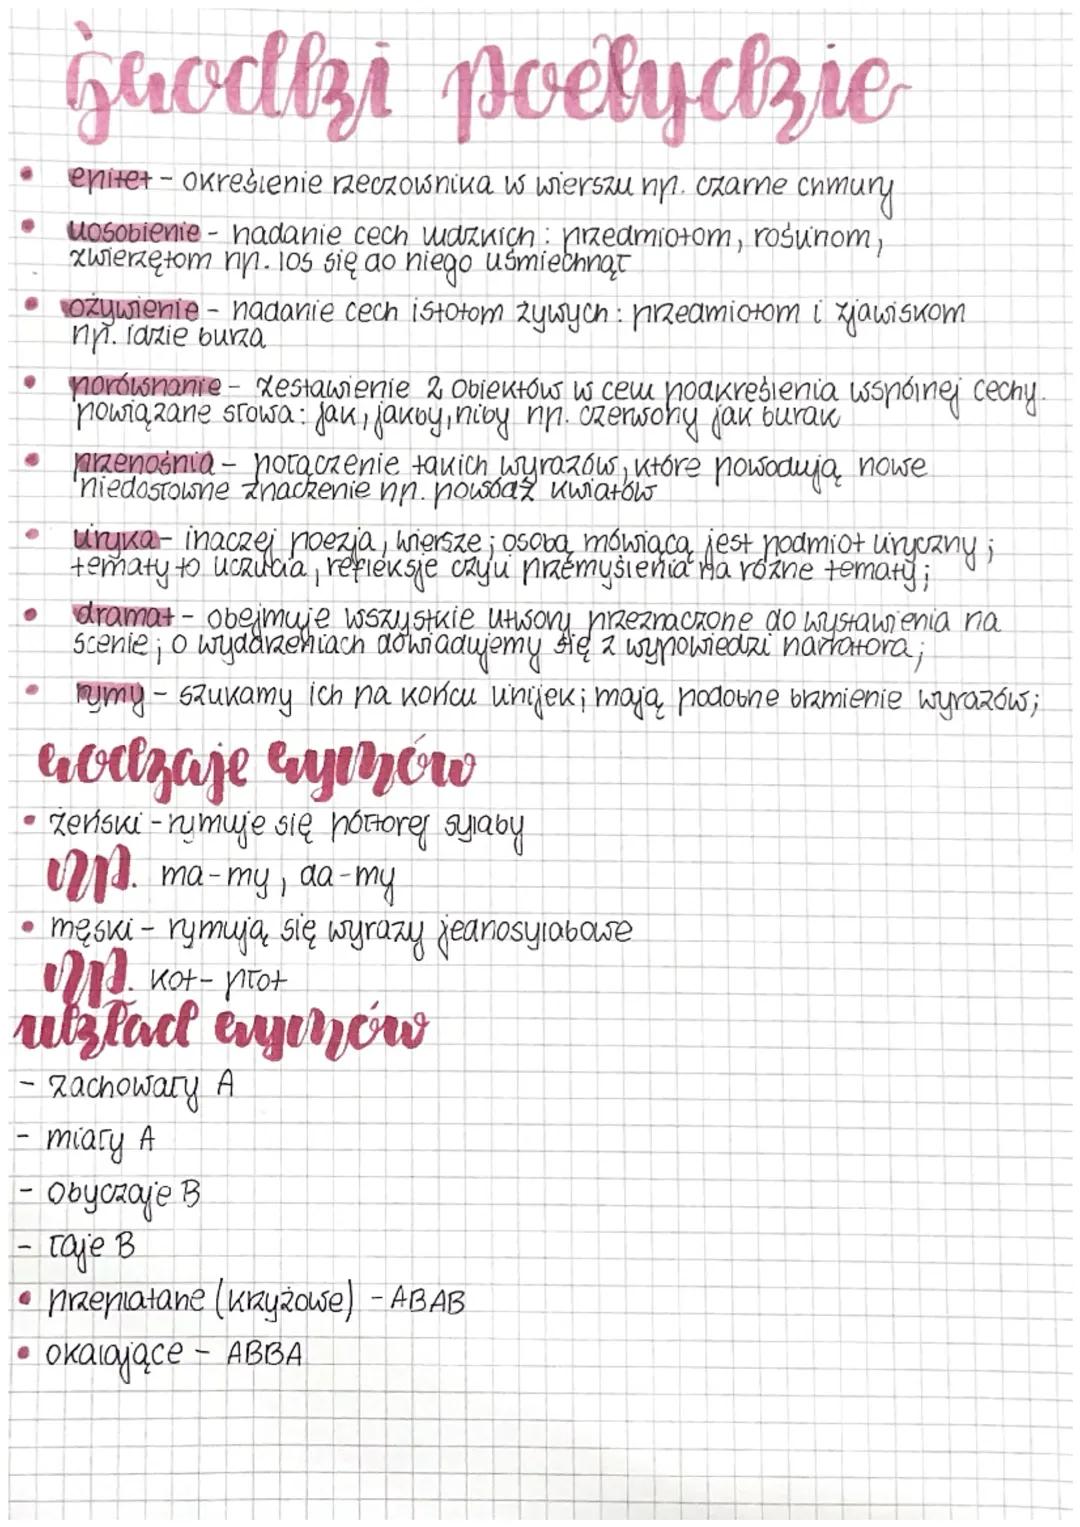 środki poetyckie
• epitet - określenie rzeczownika w wierszu np. czarne chmury
• uosobienie - nadanie cech ludzkich : przedmiotom, roślinom,
zwierzętom np. los się do niego uśmiechnął
• ożywienie - nadanie cech istotom żywych : przedmiotom i zjawiskom
np. idzie burza
• porównanie - zestawienie 2 obiektów w celu podkreślenia wspólnej cechy.
powiązane słowa: jak, jakby, niby np. czerwony jak burak
• przenośnia - połączenie takich wyrazów, które powodują nowe
niedosłowne znaczenie np. powódź kwiatów
• liryka - inaczej poezja, wiersze ; osobą mówiącą jest podmiot liryczny ;
tematy to uczucia, refleksje czyli przemyślenia na różne tematy ;
• dramat - obejmuje wszystkie utwory przeznaczone do wystawienia na
scenie ; o wydarzeniach dowiadujemy się z wypowiedzi narratora ;
• rymy - szukamy ich na końcu linijek ; mają podobne brzmienie wyrazów ;
rodzaje rymów
• żeński - rymuje się półtorej sylaby
np. ma-my, da-my
• męski - rymują się wyrazy jednosylabowe
np. kot - płot
układ rymów
- zachowały A
- miały A
- obyczaje B
- łaje B
• przeplatane (krzyżowe) - ABAB
• okalające - ABBA